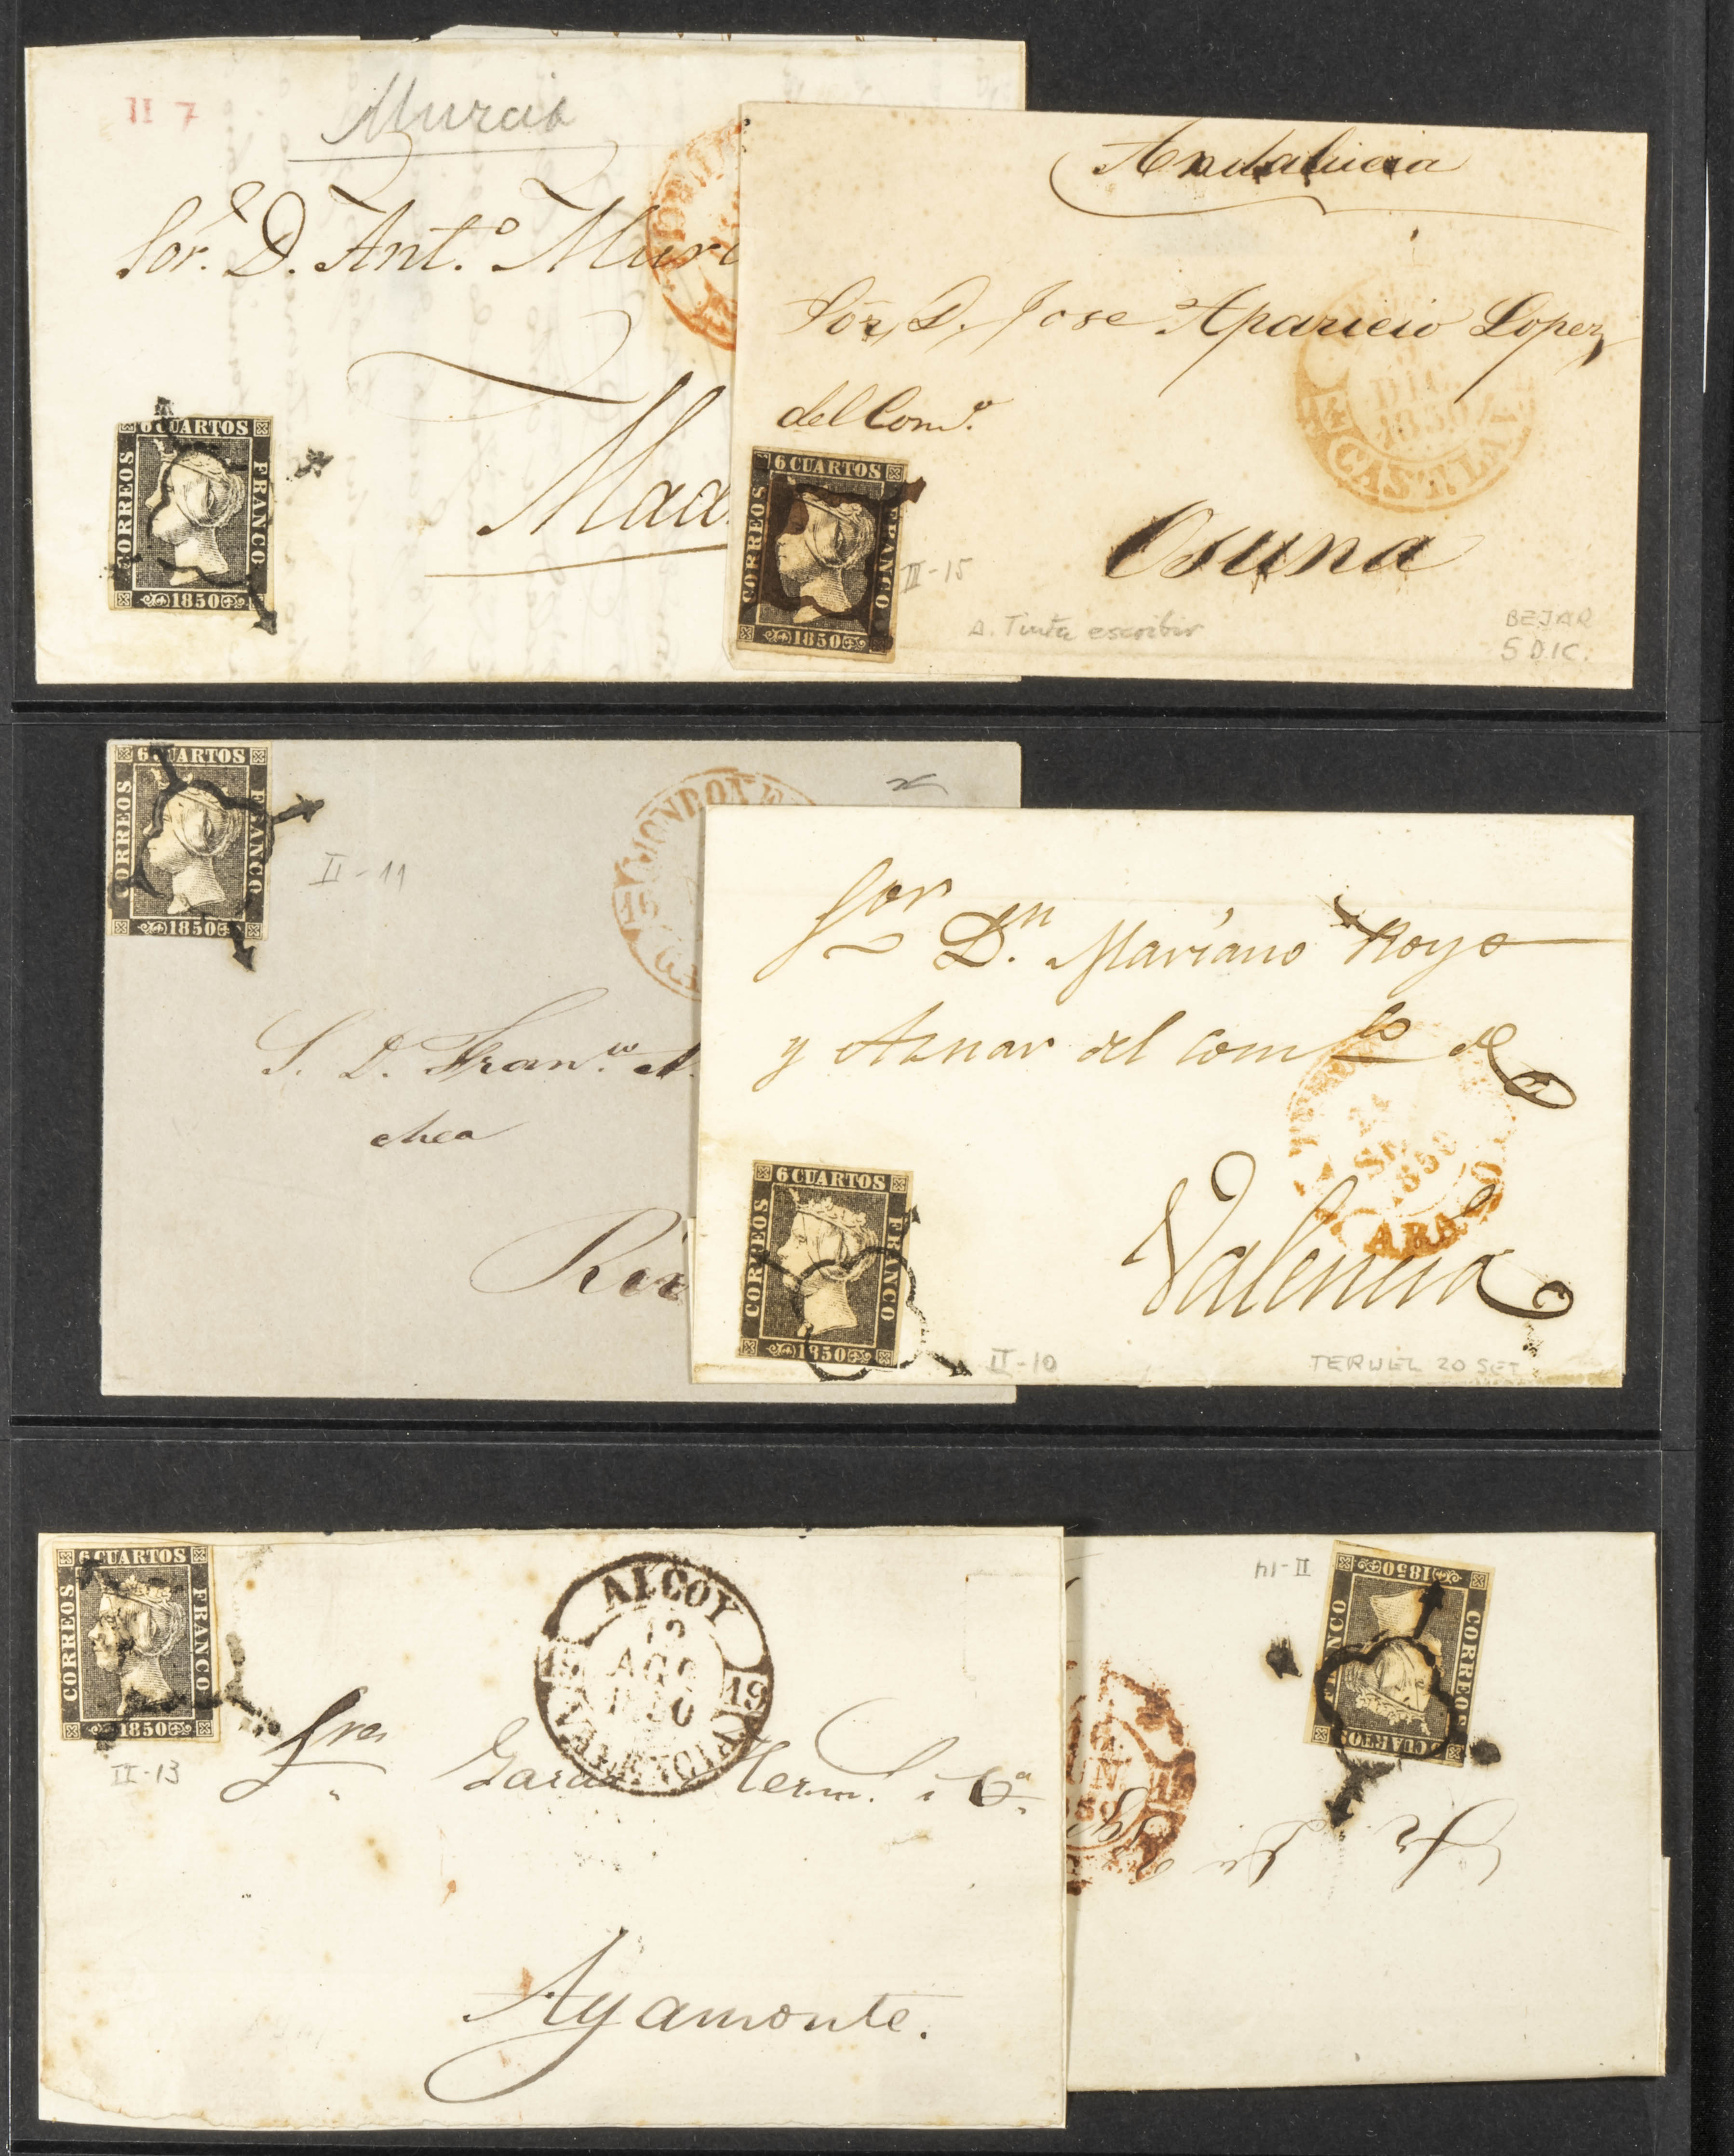 II 7
Murcia
Sor. D. Ant.º
6 CUARTOS
CORREOS
FRANCO
1850
Andalucia
Sor. D. Jose Aparicio Lopez
del Com.º
DIC.
1850
CAST.LA
6 CUARTOS
CORREOS
FRANCO
1850
II-15
Osuna
A. Tinta escribir
BEJAR
5 DIC.
6 CUARTOS
CORREOS
FRANCO
1850
II-11
MONDOÑE
15
S. D. Fran.co
chea
Sor Dn. Mariano Royo
y Aznar del comco de
24
SE
1850
ARAGO
Valencia
6 CUARTOS
CORREOS
FRANCO
1850
II-10
TERUEL 20 SET
6 CUARTOS
CORREOS
FRANCO
1850
II-13
ALCOY
AGO
1850
19 19
VALENCIA
Sres Herm. i Ca.
Ayamonte.
II-14
6 CUARTOS
CORREOS
FRANCO
1850